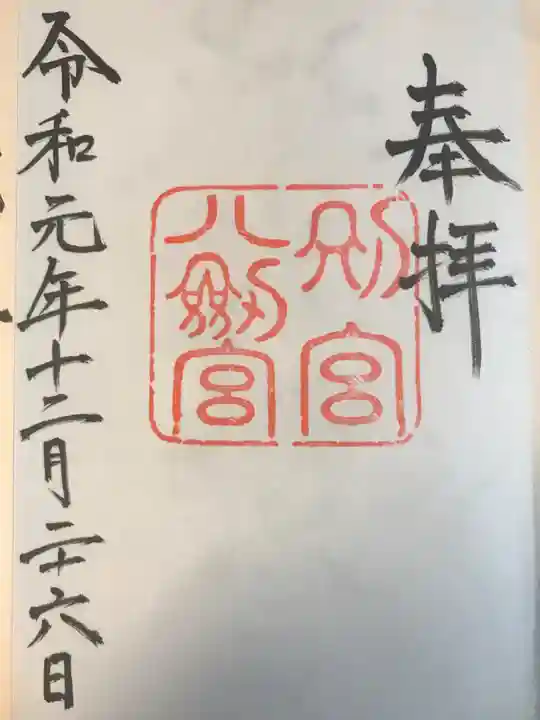 奉拝
別宮
八剱宮
令和元年十二月二十六日